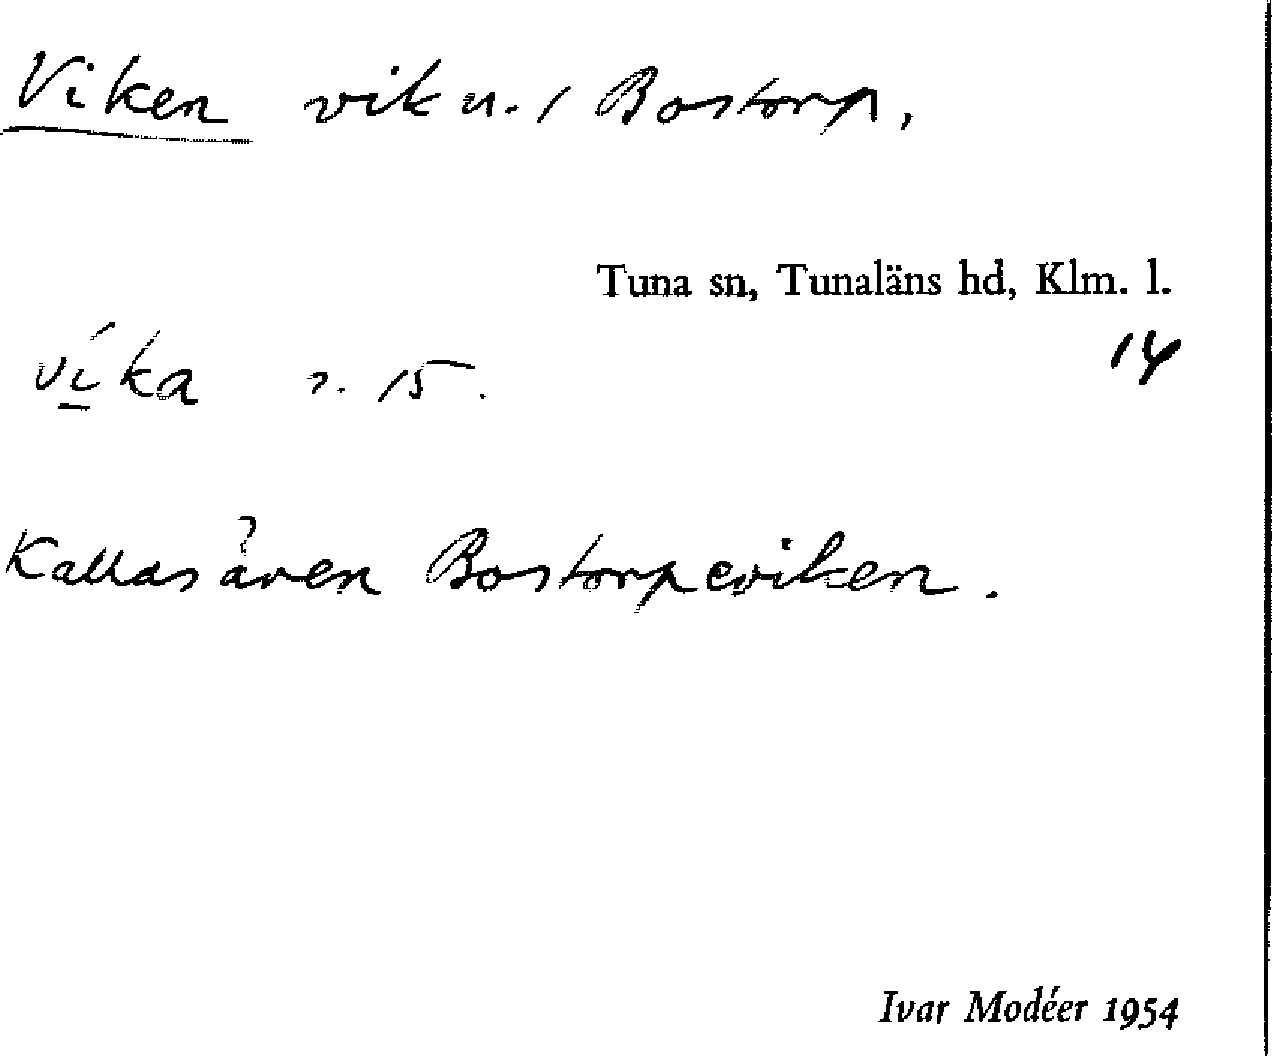 Viken vik u. / Bostorp,
Tuna sn, Tunaläns hd, Klm. l.
14
víka 2. 15.
Kallas även Bostorpeviken.
Ivar Modéer 1954